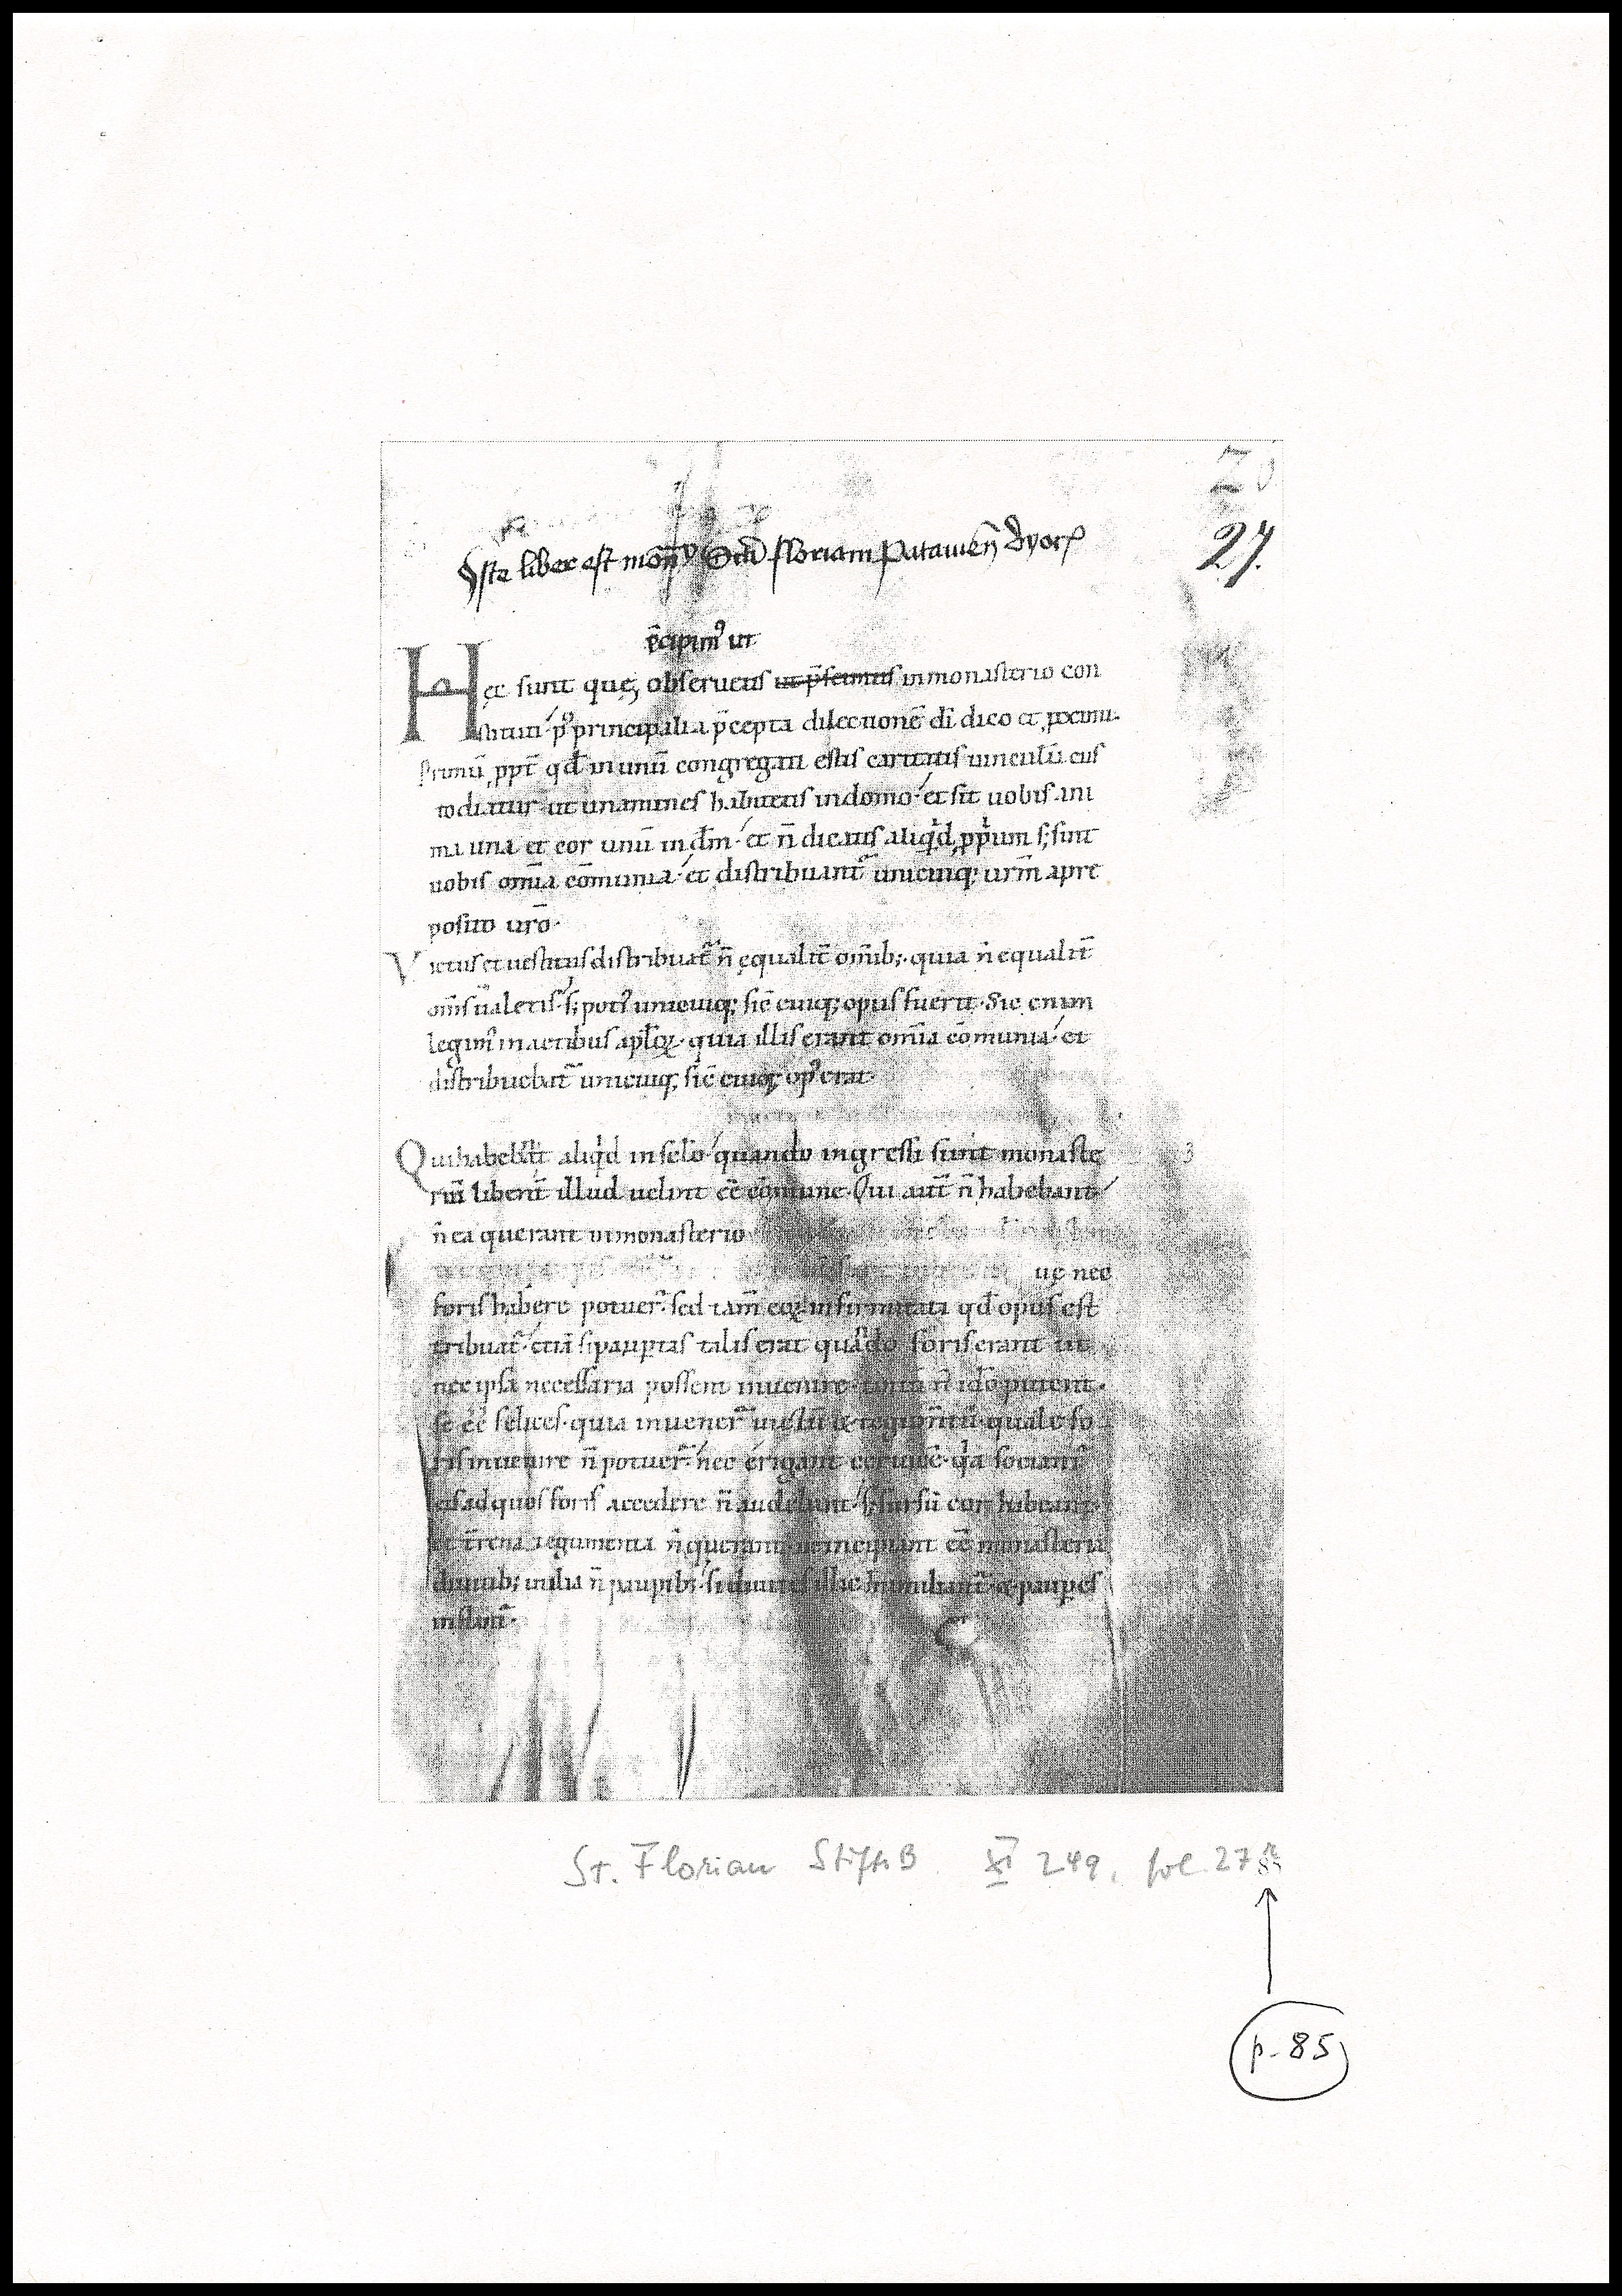 27.
Iste liber est mon̄ Sc̄i floriani patauien̄ dyoc̄
p̄cipim⁹ ut
Hec sunt que, obseruetis ut p̄scimus inmonasterio con
stituti p⁹ principalia p̄cepta dilectionē dī dico et proximi.
Primū ppt̄ qđ inunū congregati estis caritatis uinculū cus
todiatur ut unanimes habitetis indomo et sit uobis ani
ma una et cor unū indm̄ et n̄ dicatis aliqd pprium s; sunt
uobis om̄ia cōmunia et distribuant̄ unicuiq; urm̄ apre
posito uro.
Victus et uestitus distribuat̄ n̄ equalit̄ omīb; quia n̄ equalit̄
om̄s ualetis s; poti⁹ unicuiq; sic̄ cuiq; opus fuerit. Sic enim
legim⁹ inactibus aplōꝝ quia illis erant om̄ia cōmunia et
distribuebat̄ unicuiq; sic̄ cuiq; op⁹ erat.
Qui habebant aliqd insclo quando ingressi sunt monaste
riū libent̄ illud uelint ēe cōmune. Qui aut̄ n̄ habebant
n̄ ea querant inmonasterio
que nec
foris habere potuer̄. sed tam̄ eoꝝ infirmitati qđ opus est
tribuat̄ etiā si paup̄tas talis erat quādo foris erant ut
nec ipsa necessaria possent inuenire tantū n̄ ido putent.
se ēe felices. quia inuener̄ uictū et tegm̄tū quale fo
ris inuenire n̄ potuer̄. nec erigant ceruicē qa sociant̄
eis ad quos foris accedere n̄ audebant s; sursū cor habeant
et t̄rena n̄ querant ne incipiant ēe monasteria
diuitib; utilia n̄ paupibꝰ si diuites illic humiliant̄ et paupes
inflant̄.
St. Florian StiftsB XI 249, fol. 27r
p. 85